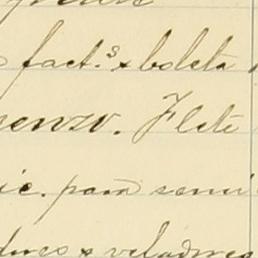 fact.s x boleta
enzo. Flete
ic. para semi
dores x veladores